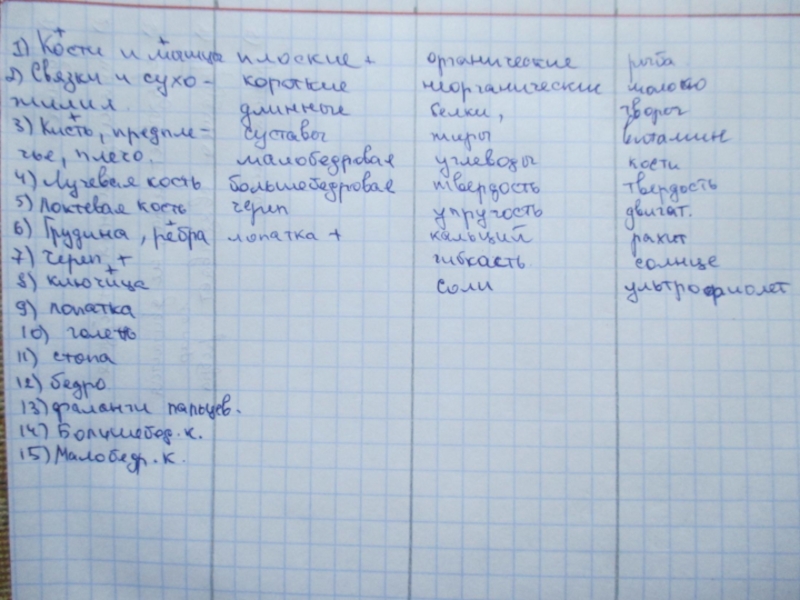 1) Кости и мышца
2) Связки и сухо-
жилия
3) Кисть, предпле-
чье, плечо.
4) Лучевая кость
5) Локтевая кость
6) Грудина, рёбра
7) Череп +
8) ключица
9) лопатка
10) голень
11) стопа
12) бедро
13) фаланги пальцев.
14) Большебед. к.
15) Малобедр. к.
плоские +
короткие
длинные
суставы
малобедровая
большебедровая
череп
лопатка +
органические
неорганические
белки,
жиры
углеводы
твердость
упругость
кальций
гибкасть
соли
рыба
молоко
творог
витамин
кости
твердость
двигат.
рахит
солнце
ультрофиолет